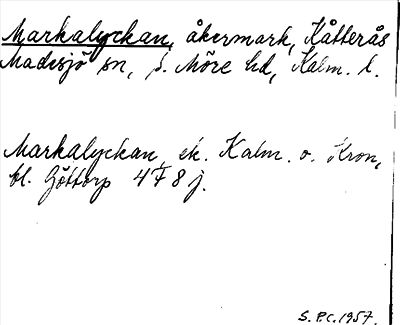 Markalyckan, åkermark, Kåtterås
Madesjö sn, S. Möre hd, Kalm. l.
Markalyckan, ek. Kalm. o. Kron,
bl. Göttorp 4 F 8 j.
S.P.C. 1957.